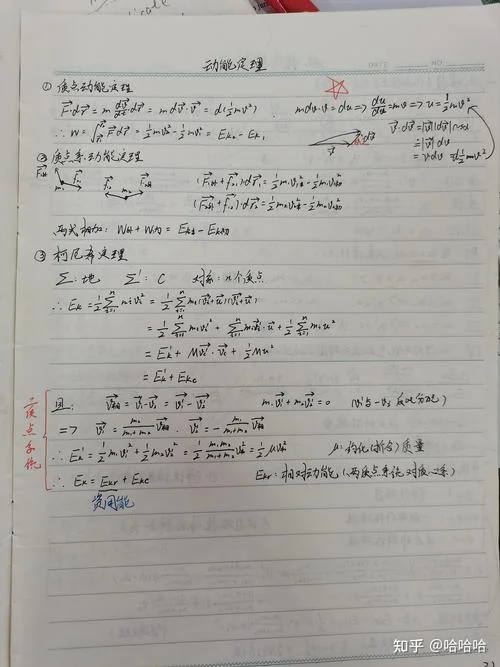 动能定理
① 质点动能定理
F⃗·dr⃗ = m dv⃗/dt·dr⃗ = m dv⃗·v⃗ = d(½mv²) mdv·v = du => du/dv = mv => u = ½mv²
∴ W = ∫F⃗·dr⃗ = ½mv₂² - ½mv₁² = Ek₂ - Ek₁
v⃗·dv⃗ = |v⃗||dv⃗|cosα
= |v⃗|dv
= v·dv = d½mv²
② 质点系动能定理
(F⃗₁外+f⃗₁)·dr⃗₁ = ½m₁v₁末² - ½m₁v₁初²
(F⃗₂外+f⃗₂)·dr⃗₂ = ½m₂v₂末² - ½m₂v₂初²
两式相加: W外+W内 = Ek末 - Ek初
③ 柯尼希定理
Σ:地 Σ':C 对象:n个质点
∴ Ek = ½Σmᵢvᵢ² = ½Σmᵢ(v⃗ᵢ'+u⃗)(v⃗ᵢ'+u⃗)
= ½Σmᵢvᵢ'² + Σmᵢv⃗ᵢ'·u⃗ + ½Σmᵢu²
= Ek' + Mv⃗c'·v⃗c + ½Mu²
= Ek' + Ekc
二质点系统
且: v⃗相 = v⃗₁-v⃗₂ = v⃗₁'-v⃗₂' m₁v⃗₁'+m₂v⃗₂'=0
=> v⃗₁' = m₂/(m₁+m₂) v⃗相 , v⃗₂' = -m₁/(m₁+m₂) v⃗相
∴ Ek' = ½m₁v₁'²+½m₂v₂'² = ½ m₁m₂/(m₁+m₂) v相² = ½μv相² μ:约化(折合)质量
∴ Ek = Ekr + Ekc Ekr:相对动能(两质点系统对质心系)
资用能
知乎 @哈哈哈